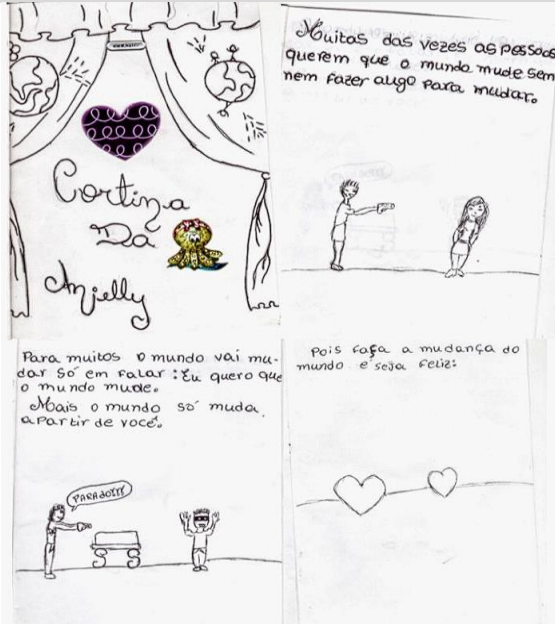 Cortina
Da
Anjelly
Muitas das vezes as pessoas
querem que o mundo mude sem
nem fazer algo para mudar.
Para muitos o mundo vai mu-
dar só em falar: Eu quero que
o mundo mude.
Mais o mundo só muda
apartir de você.
PARADO!!!
Pois faça a mudança do
mundo e seja feliz: